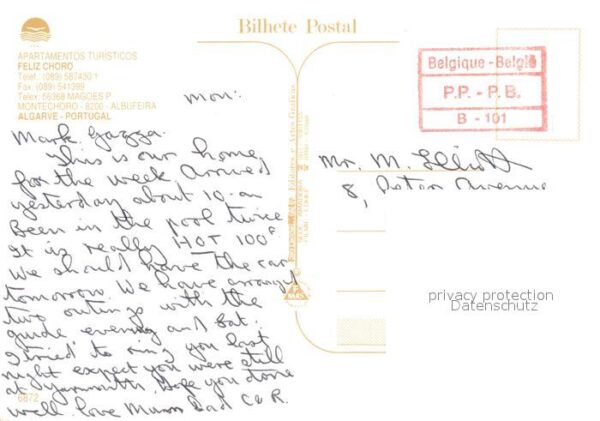 Bilhete Postal
APARTAMENTOS TURÍSTICOS
FELIZ CHORO
Telef. (089) 587430 1
Fax (089) 541399
Telex 56368 MAGOES P
MONTECHORO - 8200 - ALBUFEIRA
ALGARVE - PORTUGAL
Belgique - België
P.P. - P.B.
B - 101
Mon:
Mark Gazza.
This is our home
for the week Arrived
yesterday about 10.am
Been in the pool twice
It is really HOT 100°
We should have the car
tomorrow We have arranged
two outings with the
guide evening and Sat.
I tried to ring you last
night expect you were still
at Yarmouth. Hope you done
well. love Mum Dad C & R.
Mr. M. Elliott
8, Avenue
privacy protection
Datenschutz
6872